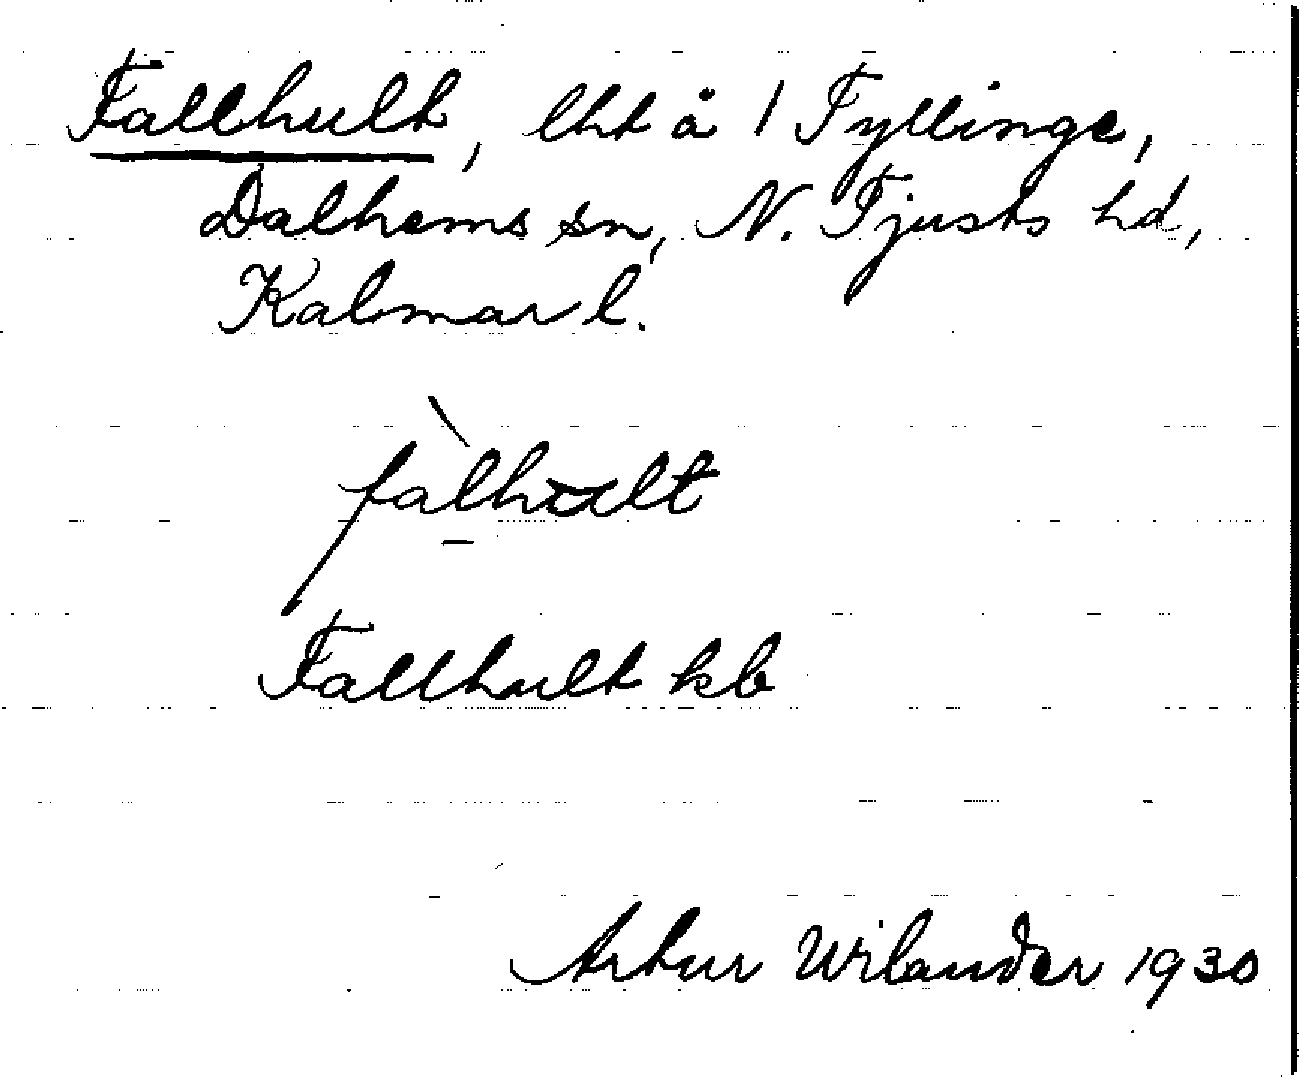 Fallhult, lht å 1 Fyllinge,
Dalhems sn, N. Tjusts hd,
Kalmar l.
fàlhult
Fallhult kb
Artur Wilander 1930